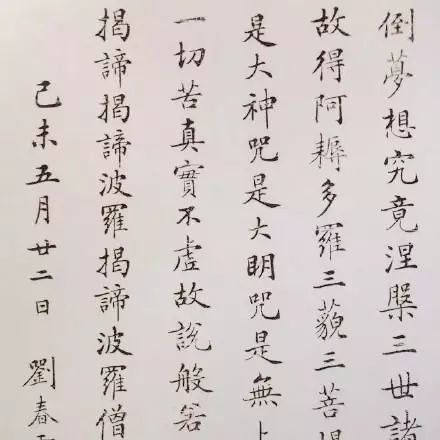 倒夢想究竟涅槃三世諸
故得阿耨多羅三藐三菩提
是大神咒是大明咒是無上
一切苦真實不虛故說般若
揭諦揭諦波羅揭諦波羅僧
己未五月廿二日 劉春